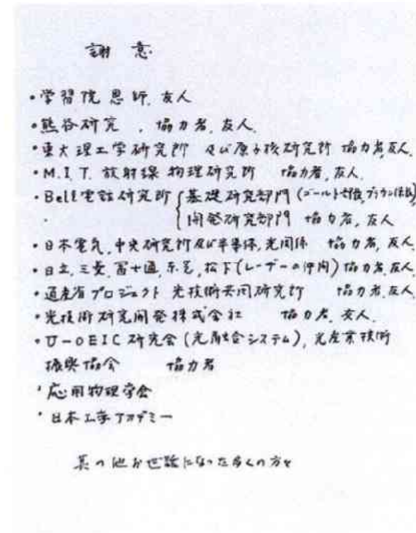 謝意
・学習院 恩師、友人
・熊谷研究 、協力者、友人、
・東大理工学研究所 及び原子核研究所 協力者、友人、
・M.I.T. 放射線 物理研究所 協力者、友人、
・Bell電話研究所 基礎研究部門 (ゴールド
・ 開発研究部門 協力者、友人
・日本電気、中央研究所及び半導体、光関係 協力者、友人、
・日立、三菱、富士通、東芝、松下(レーザーの仲間) 協力者、友人、
・通産省プロジェクト 光技術共同研究所 協力者、友人、
・光技術研究開発株式会社 協力者、友人、
・U-OEIC 研究会 (光融合システム)、光産業技術
振興協会 協力者
・応用物理学会
・日本工学アカデミー
其の他お世話になった多くの方々